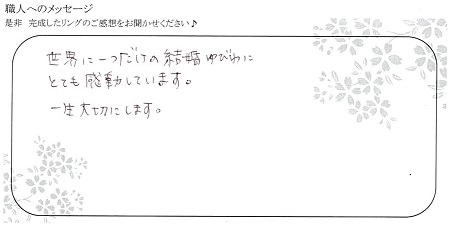 職人へのメッセージ
是非 完成したリングのご感想をお聞かせください♪
世界に一つだけの結婚ゆびわに
とても感動しています。
一生大切にします。